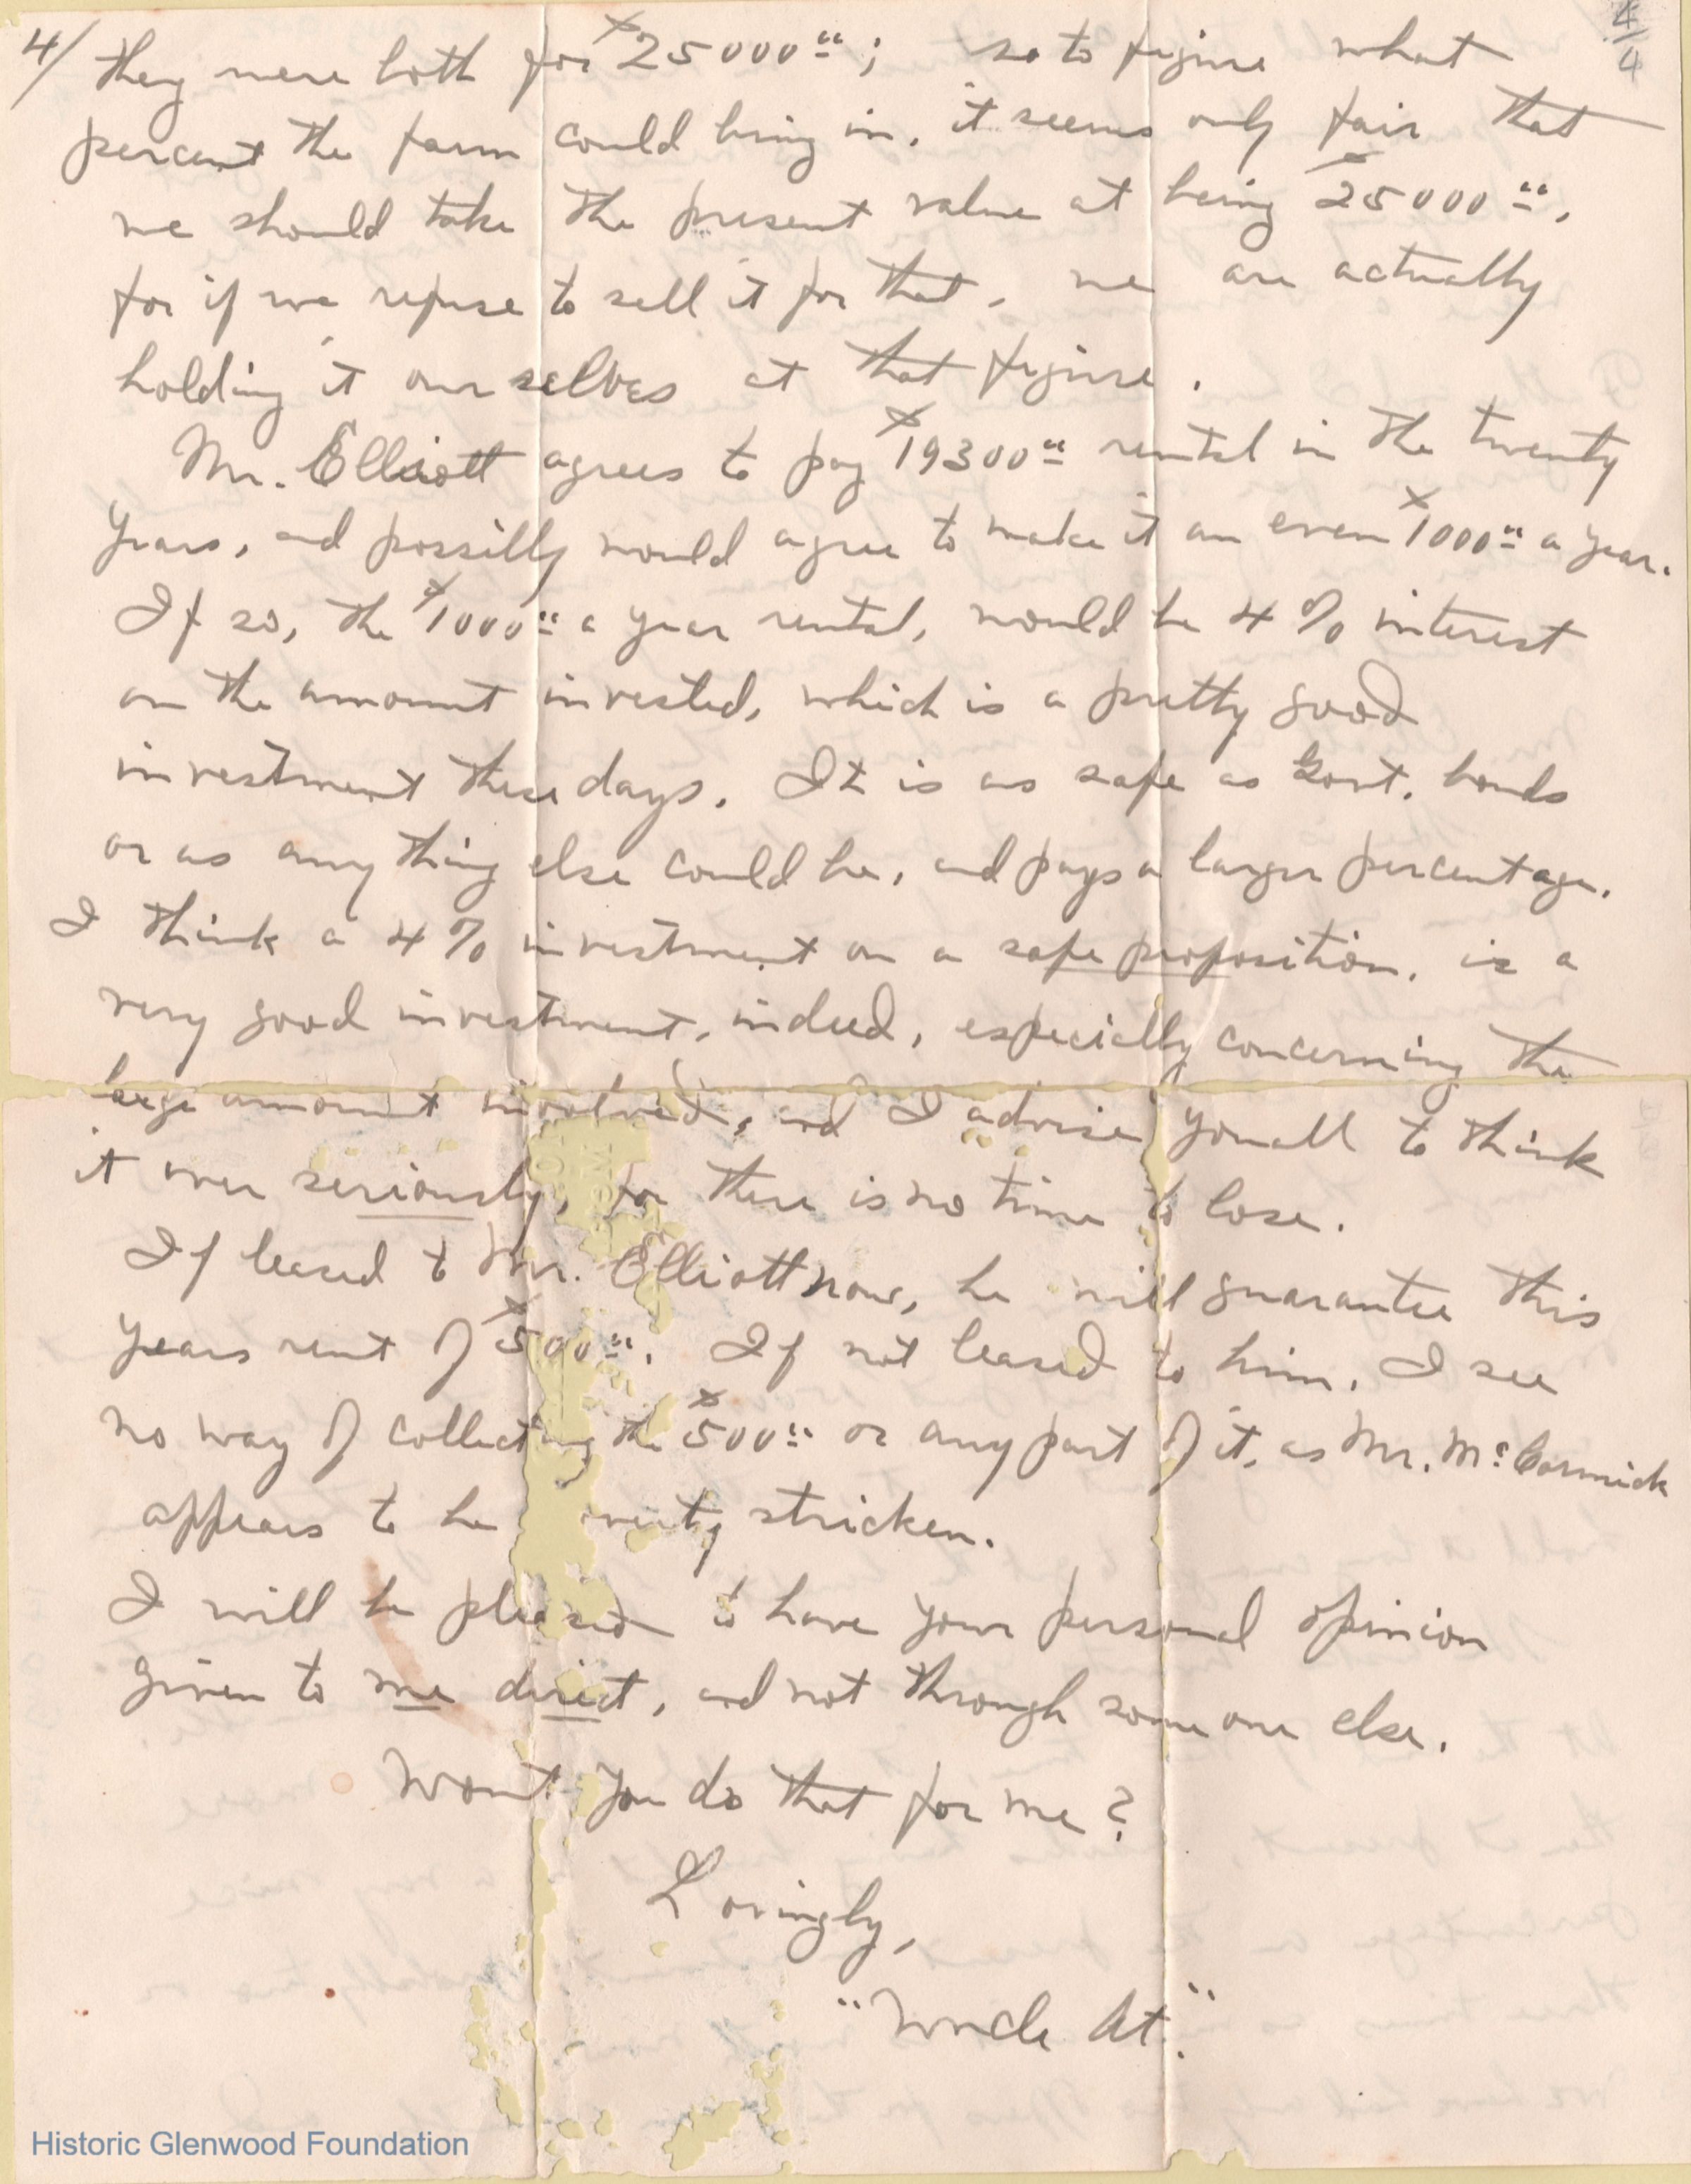 4/ they were both for $25000.00; so to figure what
4/4
percent the farm could bring in, it seems only fair that
we should take the present value at being $25000.00,
for if we refuse to sell it for that, we are actually
holding it ourselves at that figure.
Mr. Elliott agrees to pay $19300.00 rental in the twenty
years, and possibly would agree to make it an even $1000.00 a year.
If so, the $1000.00 a year rental, would be 4% interest
on the amount invested, which is a pretty good
investment these days. It is as safe as Govt. bonds
or as any thing else could be, and pays a larger percentage.
I think a 4% investment on a safe proposition, is a
very good investment, indeed, especially concerning the
large amount involved, and I advise you all to think
it over seriously, for there is no time to lose.
If leased to Mr. Elliott now, he will guarantee this
years rent of $500.00. If not leased to him, I see
no way of collecting the $500.00 or any part of it, as Mr. McCormick
appears to be verty stricken.
I will be pleased to have your personal opinion
given to me direct, and not through some one else.
Wont you do that for me?
Lovingly,
"Uncle At."
Historic Glenwood Foundation